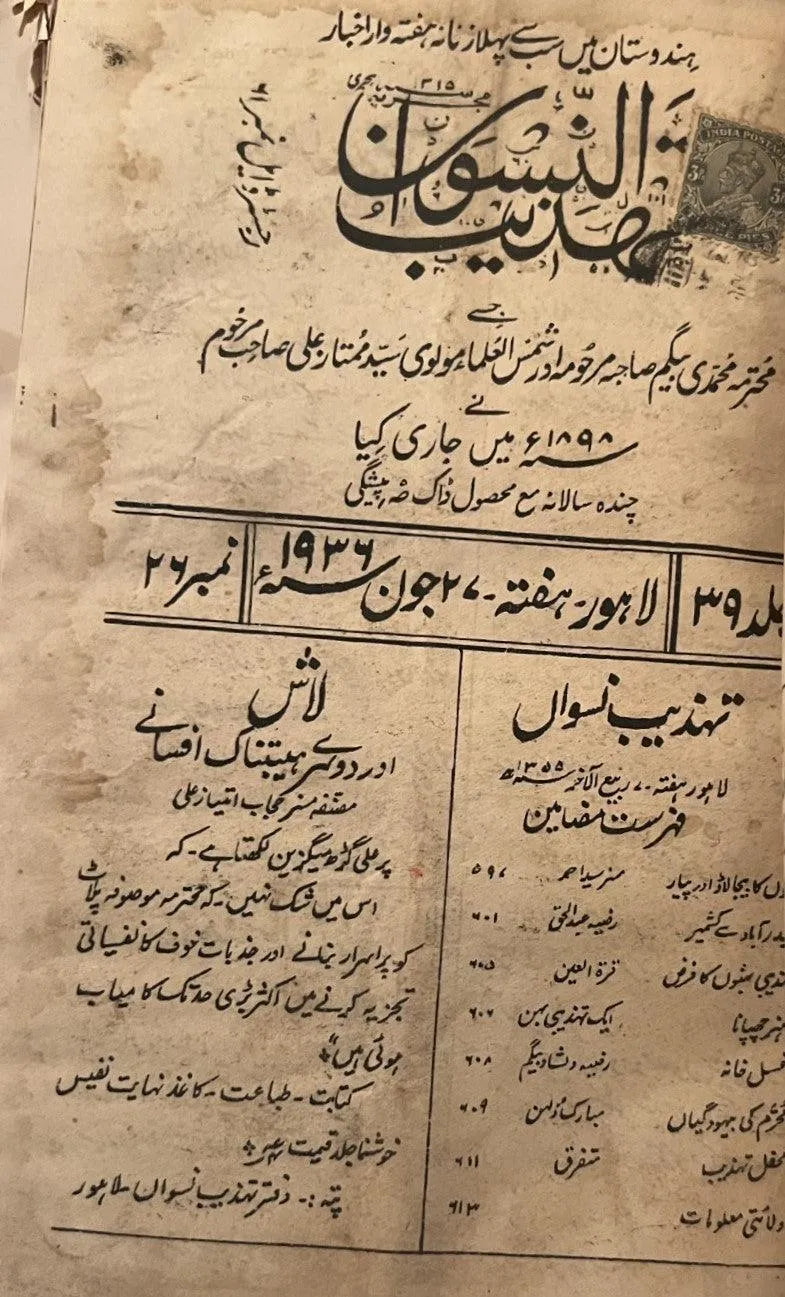 ہندوستان میں سب سے پہلا زنانہ ہفتہ وار اخبار
مجریہ ۱۳۱۵ ہجری
تہذیب النسواں
رجسٹرڈ ایل نمبر ۶۱
INDIA POSTAGE
جسے
محترمہ محمدی بیگم صاحبہ مرحومہ اور شمس العلماء مولوی سید ممتاز علی صاحب مرحوم
نے
۱۸۹۸ء میں جاری کیا
چندہ سالانہ مع محصول ڈاک پیشگی
جلد ۳۹
لاہور - ہفتہ - ۲۷ جون ۱۹۳۶ء
نمبر ۲۶
تہذیب نسواں
لاہور ہفتہ - ۷ ربیع الآخر ۱۳۵۵ھ
فہرست مضامین
کا بیجا لاڈ اور پیار مسز سید احمد ۵۹۷
حیدرآباد سے کشمیر رفیعہ عبدالحق ۶۰۱
تہذیبی بہنوں کا فرض قرۃ العین ۶۰۵
ہنر چھپانا ایک تہذیبی بہن ۶۰۷
غسل خانہ رفیعہ دلشاد بیگم ۶۰۸
محرم کی بیہودگیاں مبارک دلہن ۶۰۹
محفل تہذیب متفرق ۶۱۱
ولائتی معلومات ۶۱۳
لاش
اور دوسرے ہیبتناک افسانے
مصنفہ مسز حجاب امتیاز علی
پر علی گڑھ میگزین لکھتا ہے - کہ
اس میں شک نہیں - کہ محترمہ موصوفہ پلاٹ
کو پراسرار بنانے اور جذبات خوف کا نفسیاتی
تجزیہ کرنے میں اکثر بڑی حد تک کامیاب
ہوئی ہیں"
کتابت - طباعت - کاغذ نہایت نفیس
خوشنما جلد قیمت
پتہ :- دفتر تہذیب نسواں - لاہور